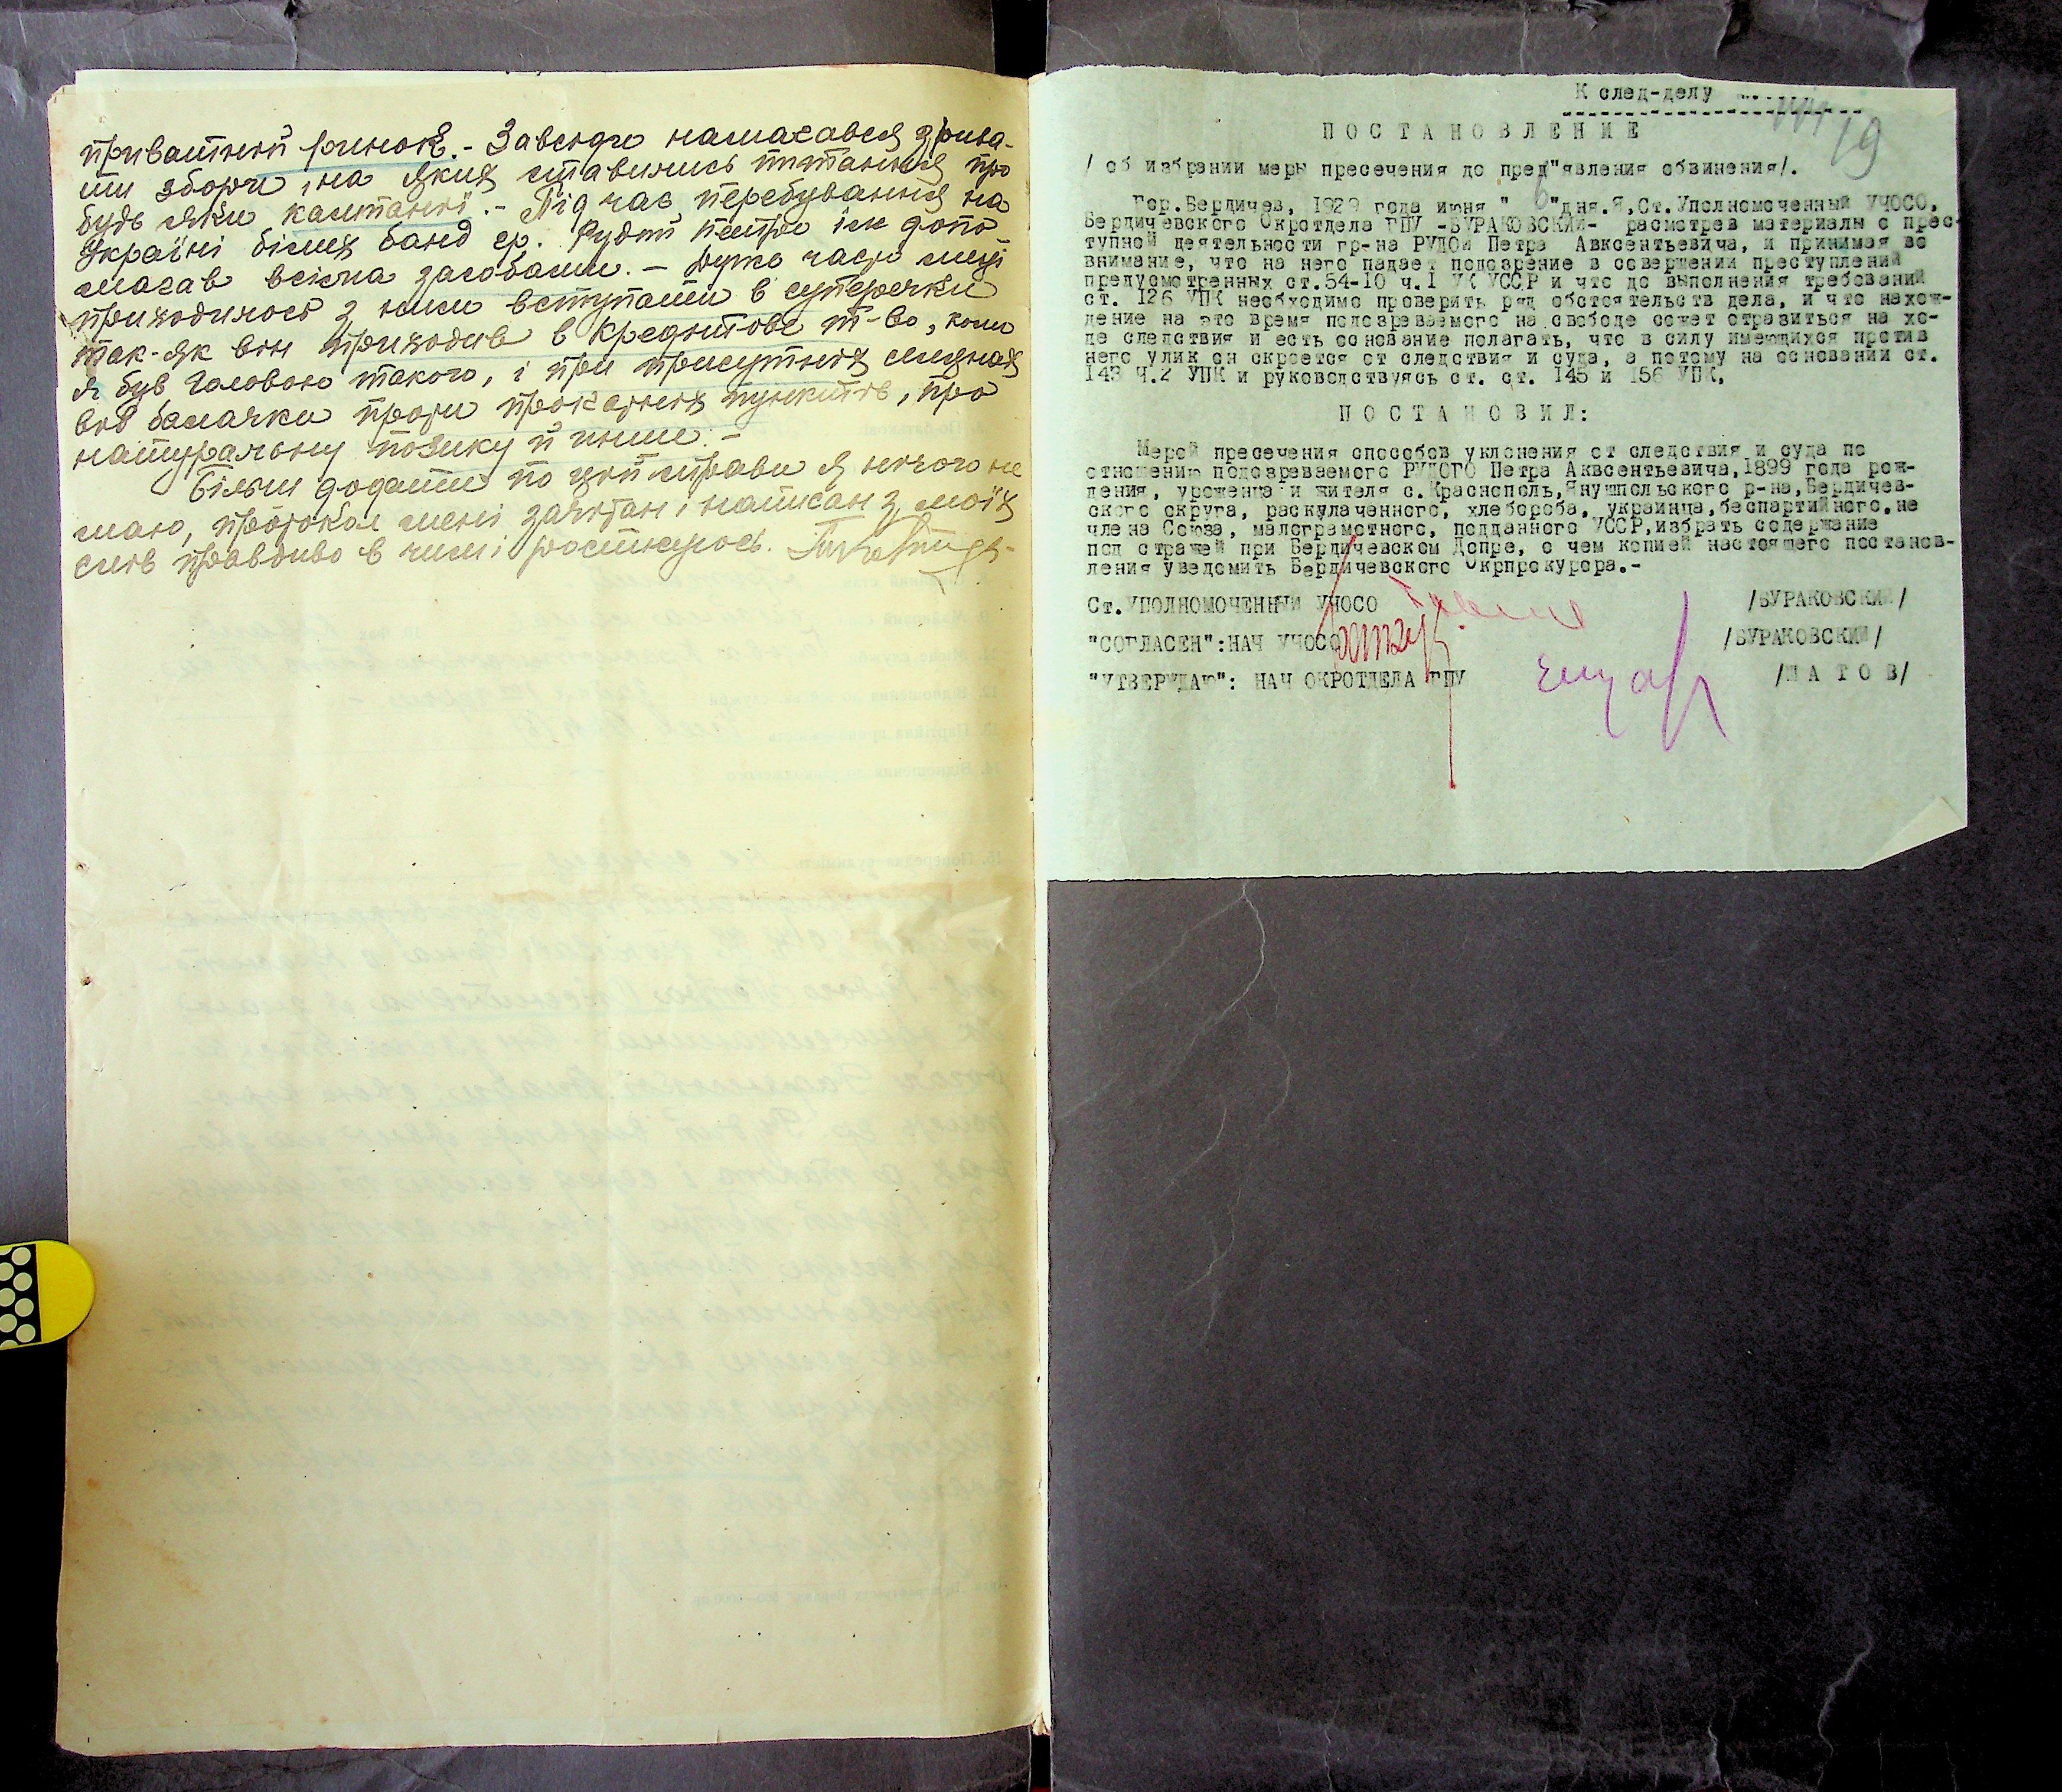 приватний ринок. - Завсюди намагався зрива-
ти збори, на яких ставились питання про
будь яки кампанії. - Під час перебування на
Україні білих банд гр. Рудий Петро їм допо
магав всіма засобами. - Дуже часто мені
приходилось з ним вступати в суперечки
так-як він приходив в Кредитове т-во, коли
я був Головою такого, і при присутних людях
вів балачки проти прокатних пунктів, про
натуральну позику й инше. -
Більш додати по цій справи я нічого не
маю, протокол мені зачитан і написан з моїх
слів правдиво в чим і розпишусь.
К след-делу
19
ПОСТАНОВЛЕНИЕ
/ об избрании меры пресечения до пред"явления обвинения/.
Гор.Бердичев, 1929 года июня " 6 "дня.Я,Ст.Уполномоченный УЧОСО,
Бердичевского Окротдела ГПУ -БУРАКОВСКИЙ- расмотрев материалы о прес-
тупной деятельности гр-на РУДОЙ Петра Авксентьевича, и принимая во
внимание, что на него падает подозрение в совершении преступлений
предусмотренных ст.54-10 ч.I УК УССР и что до выполнения требований
ст. 126 УПК необходимо проверить ряд обстоятельств дела, и что нахож-
дение на это время подозреваемого на свободе может отразиться на хо-
де следствия и есть основание полагать, что в силу имеющихся против
него улик он скроется от следствия и суда, а потому на основании ст.
143 Ч.2 УПК и руководствуясь ст. ст. 145 и 156 УПК,
ПОСТАНОВИЛ:
Мерой пресечения способов уклонения от следствия и суда по
отношению подозреваемого РУДОГО Петра Аквсентьевича,1899 года рож-
дения, уроженца и жителя с.Краснополь,Янушпольского р-на,Бердичев-
ского округа, раскулаченного, хлебороба, украинца,беспартийного,не
члена Союза, малограмотного, подданного УССР,избрать содержание
под стражей при Бердичевском Допре, о чем копией настоящего постанов-
ления уведомить Бердичевского Окрпрокурора.-
Ст.УПОЛНОМОЧЕННЫЙ УЧОСО /БУРАКОВСКИЙ/
"СОГЛАСЕН":НАЧ УЧОСО /БУРАКОВСКИЙ/
"УТВЕРЖДАЮ": НАЧ ОКРОТДЕЛА ГПУ /ШАТОВ/